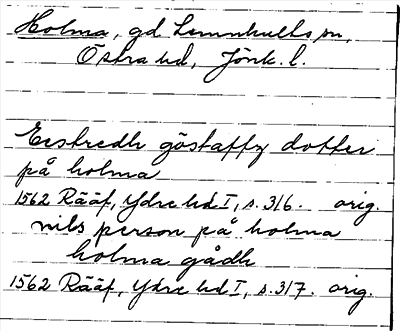 Holma, gd Lemnhults sn,
Östra hd, Jönk. l.
Erstredh göstaffz dotter
på holma
1562 Rääf, Ydre hd I, s. 316. orig.
nils person på holma
holma gådh
1562 Rääf, Ydre hd I, s. 317. orig.